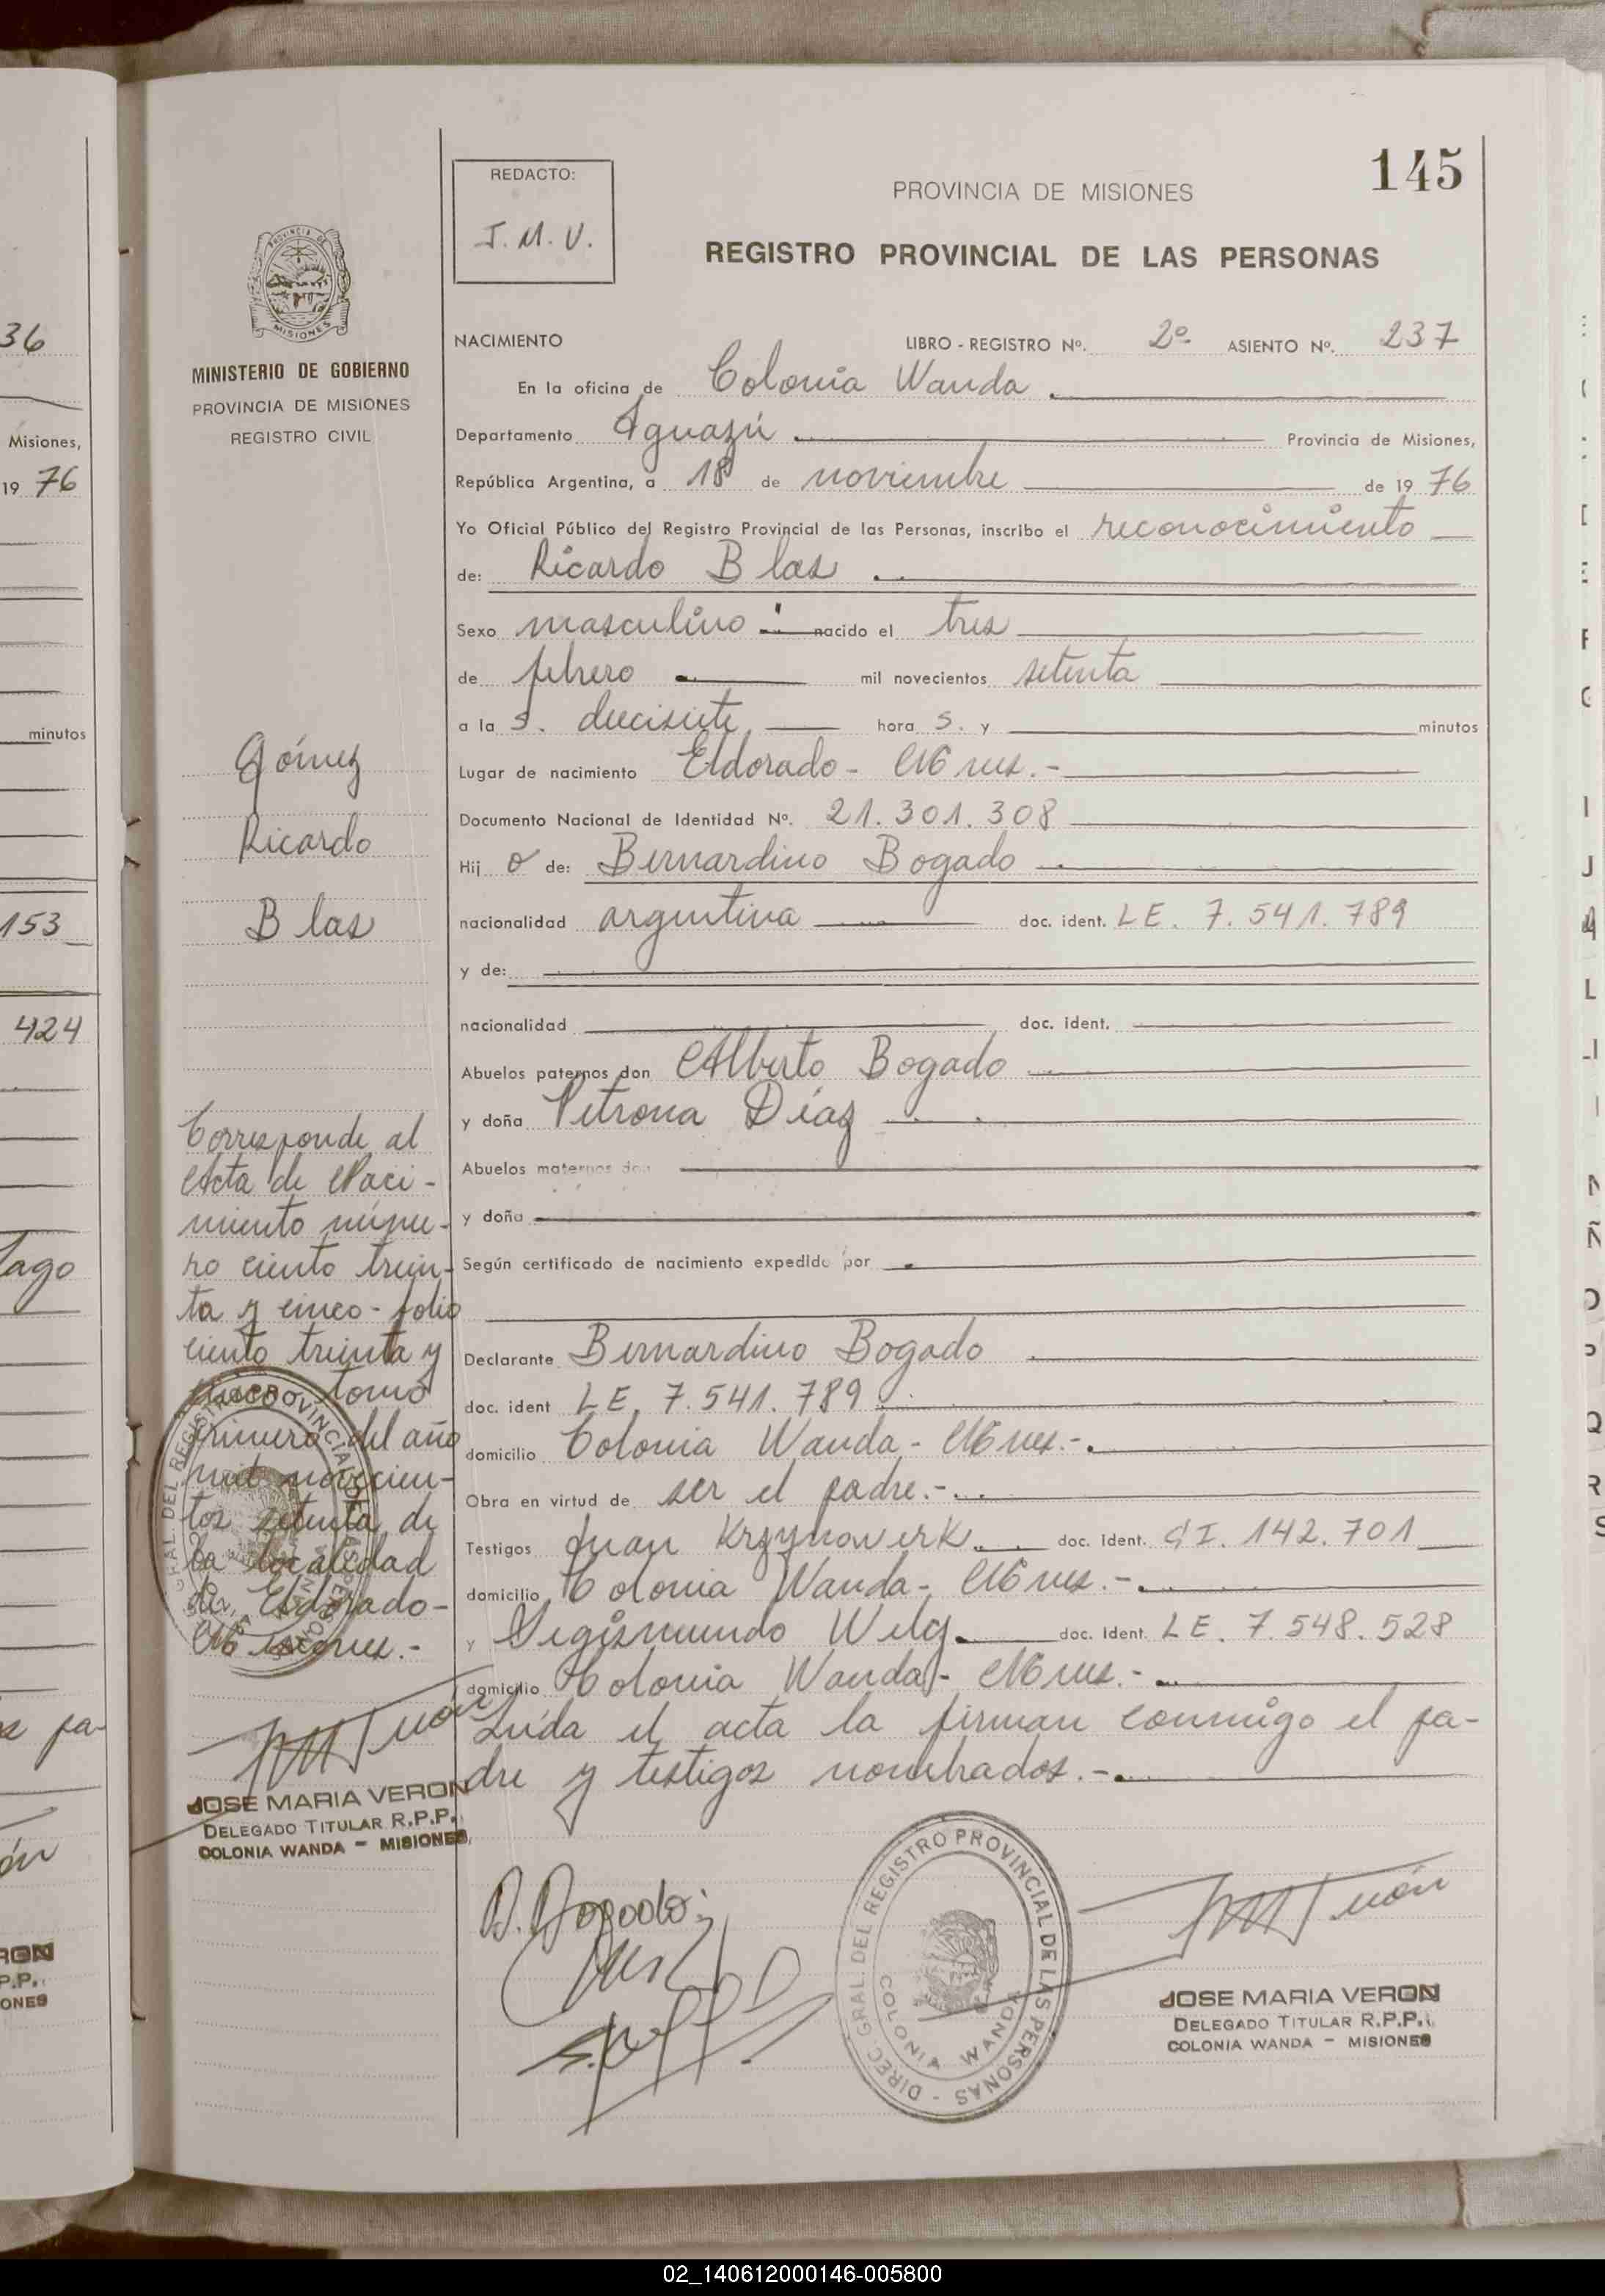 36
Misiones,
19 76
minutos
153
424
ago
pa-
145
REDACTO:
J. M. V.
PROVINCIA DE MISIONES
REGISTRO PROVINCIAL DE LAS PERSONAS
PROVINCIA DE
MISIONES
MINISTERIO DE GOBIERNO
PROVINCIA DE MISIONES
REGISTRO CIVIL
Gómez
Ricardo
Blas
Corresponde al
Acta de Naci-
miento núme-
ro ciento trein-
ta y cinco - folio
ciento treinta y
cinco tomo
primero del año
mil novecien-
tos setenta de
la localidad
de Eldorado-
Misiones.-
JOSE MARIA VERON
DELEGADO TITULAR R.P.P.
COLONIA WANDA - MISIONES
NACIMIENTO LIBRO - REGISTRO Nº. 2º ASIENTO Nº. 237
En la oficina de Colonia Wanda
Departamento Iguazú Provincia de Misiones,
República Argentina, a 18 de noviembre de 19 76
Yo Oficial Público del Registro Provincial de las Personas, inscribo el reconocimiento
de: Ricardo Blas
Sexo masculino nacido el tres
de febrero mil novecientos setenta
a la s. diecisiete hora s. y minutos
Lugar de nacimiento Eldorado - Mnes.-
Documento Nacional de Identidad Nº. 21.301.308
Hij o de: Bernardino Bogado
nacionalidad argentina doc. ident. LE. 7.541.789
y de:
nacionalidad doc. ident.
Abuelos paternos don Alberto Bogado
y doña Petrona Díaz
Abuelos maternos don
y doña
Según certificado de nacimiento expedido por
Declarante Bernardino Bogado
doc. ident LE. 7.541.789
domicilio Colonia Wanda - Mnes.-
Obra en virtud de ser el padre.-
Testigos Juan Krzynowerk doc. ident. CI. 142.701
domicilio Colonia Wanda - Mnes.-
y Segismundo Wilg doc. Ident. LE. 7.548.528
domicilio Colonia Wanda - Mnes.-
Leída el acta la firman conmigo el pa-
dre y testigos nombrados.-
B. Bogado
DIREC. GRAL. DEL REGISTRO PROVINCIAL DE LAS PERSONAS -
COLONIA WANDA
JOSE MARIA VERON
DELEGADO TITULAR R.P.P.
COLONIA WANDA - MISIONES
02_140612000146-005800